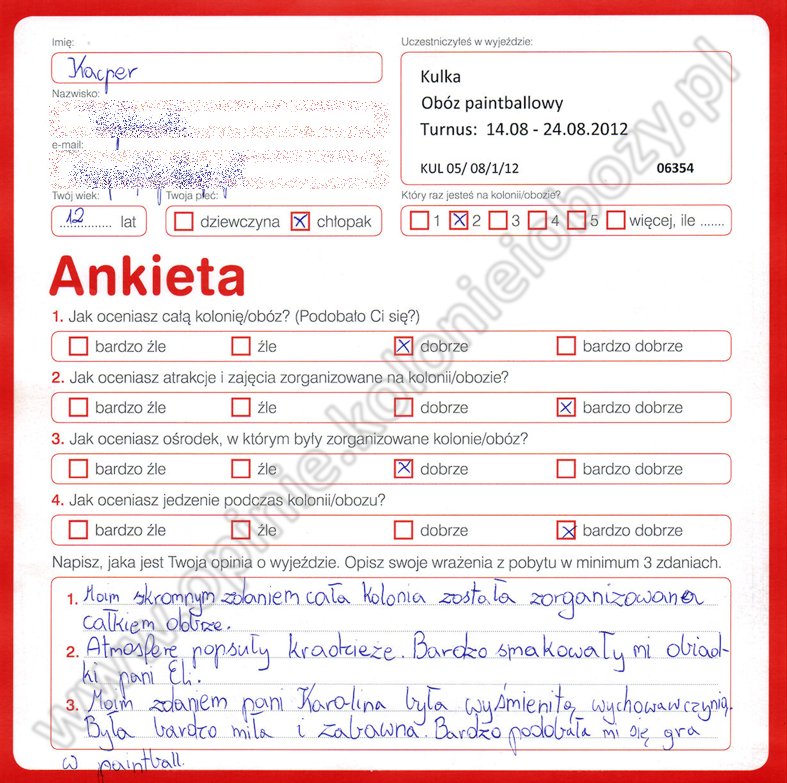 Imię:
Kacper
Uczestniczyłeś w wyjeździe:
Kulka
Obóz paintballowy
Turnus: 14.08 - 24.08.2012
KUL 05/ 08/1/12 06354
Nazwisko:
e-mail:
Twój wiek:
12 lat
Twoja płeć:
dziewczyna chłopak
Który raz jesteś na kolonii/obozie?
1 2 3 4 5 więcej, ile .......
Ankieta
1. Jak oceniasz całą kolonię/obóz? (Podobało Ci się?)
bardzo źle źle dobrze bardzo dobrze
2. Jak oceniasz atrakcje i zajęcia zorganizowane na kolonii/obozie?
bardzo źle źle dobrze bardzo dobrze
3. Jak oceniasz ośrodek, w którym były zorganizowane kolonie/obóz?
bardzo źle źle dobrze bardzo dobrze
4. Jak oceniasz jedzenie podczas kolonii/obozu?
bardzo źle źle dobrze bardzo dobrze
Napisz, jaka jest Twoja opinia o wyjeździe. Opisz swoje wrażenia z pobytu w minimum 3 zdaniach.
1. Moim skromnym zdaniem cała kolonia została zorganizowana
całkiem dobrze.
2. Atmosferę popsuły kradzieże. Bardzo smakowały mi obiad-
ki pani Eli.
3. Moim zdaniem pani Karolina była wyśmienitą wychowawczynią.
Była bardzo miła i zabawna. Bardzo podobała mi się gra
w paintball.
www.opinie.kolonieiobozy.pl